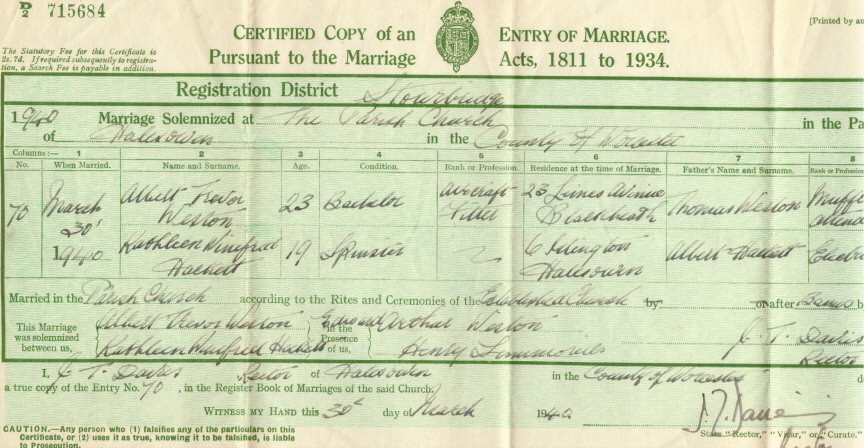 D/2 715684
[Printed by au
CERTIFIED COPY of an ENTRY OF MARRIAGE.
Pursuant to the Marriage Acts, 1811 to 1934.
The Statutory Fee for this Certificate is
2s. 7d. If required subsequently to registra-
tion, a Search Fee is payable in addition.
Registration District Stourbridge
1940 Marriage Solemnized at The Parish Church in the Pa
of Halesowen in the County of Worcester
Columns:— 1 2 3 4 5 6 7 8
No. When Married. Name and Surname. Age. Condition. Rank or Profession. Residence at the time of Marriage. Father's Name and Surname. Rank or Profession
70 March 30 1940
Albert Trevor Weston 23 Bachelor Aircraft Fitter 23 Limes Avenue Blackheath Thomas Weston
Kathleen Winefred Hackett 19 Spinster 6 Halesowen Albert Hackett
Married in the Parish Church according to the Rites and Ceremonies of the Established Church by or after Banns b
This Marriage was solemnized between us, Albert Trevor Weston Kathleen Winefred Hackett in the Presence of us, Edward Arthur Weston Henry
J. T. Davies Rector
I, J. T. Davies Rector of Halesowen in the County of Worcester do
a true copy of the Entry No. 70, in the Register Book of Marriages of the said Church.
WITNESS MY HAND this 30 day of March 1940
J. T. Davies
State "Rector," "Vicar," or "Curate."
Rector
CAUTION.—Any person who (1) falsifies any of the particulars on this
Certificate, or (2) uses it as true, knowing it to be falsified, is liable
to Prosecution.